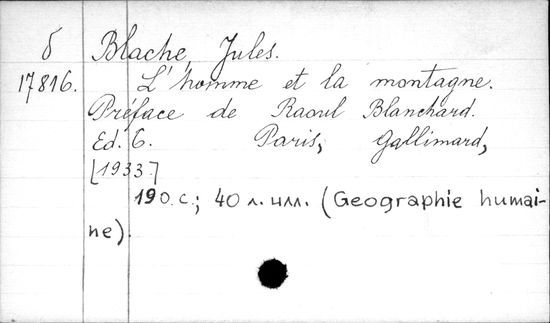 б Blache, Jules.
17816. L'homme et la montagne.
Préface de Raoul Blanchard.
Ed. 6. Paris, Gallimard,
[1933.]
190.с.; 40 л. илл. (Geographie humai-
ne).